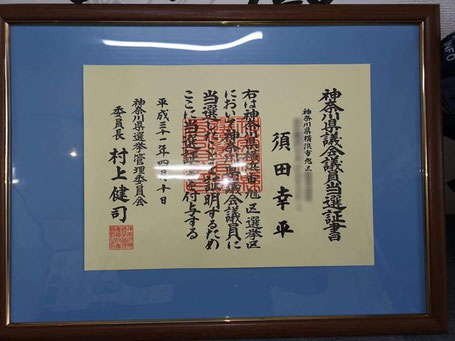 神奈川県議会議員当選証書
神奈川県横浜市旭区
須田幸平
右は神奈川県横浜市旭区選挙区
において神奈川県議会議員に
当選したことを証明するため
ここに当選証書を付与する
平成三十一年四月十日
神奈川県選挙管理委員会
委員長 村上健司